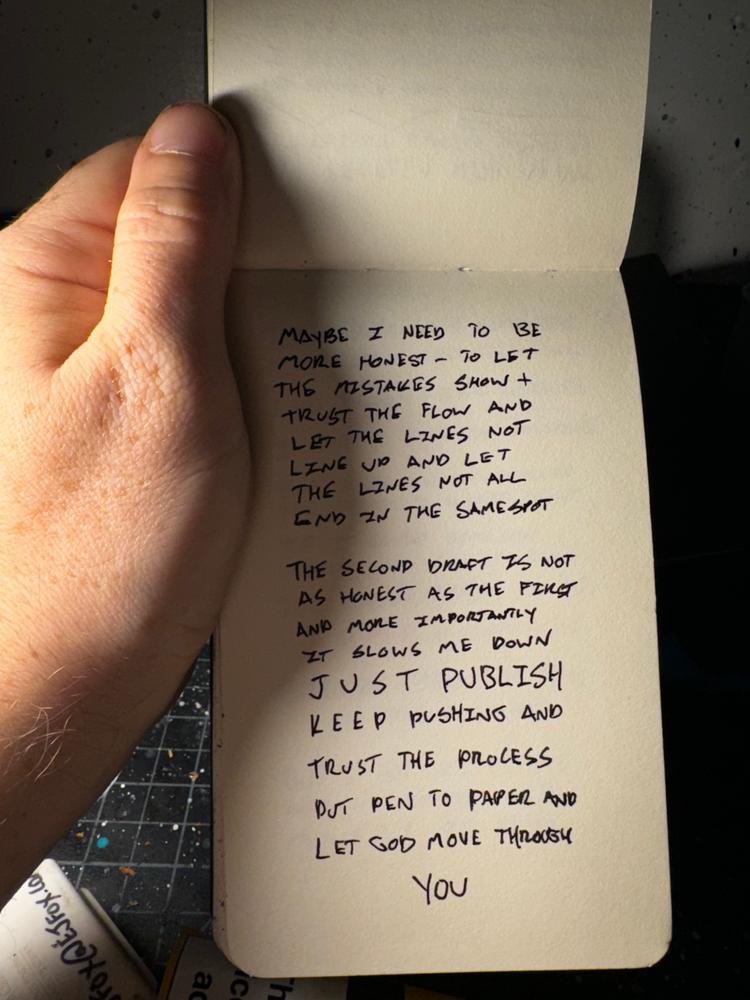 MAYBE I NEED TO BE
MORE HONEST - TO LET
THE MISTAKES SHOW +
TRUST THE FLOW AND
LET THE LINES NOT
LINE UP AND LET
THE LINES NOT ALL
END IN THE SAME SPOT
THE SECOND DRAFT IS NOT
AS HONEST AS THE FIRST
AND MORE IMPORTANTLY
IT SLOWS ME DOWN
JUST PUBLISH
KEEP PUSHING AND
TRUST THE PROCESS
PUT PEN TO PAPER AND
LET GOD MOVE THROUGH
YOU